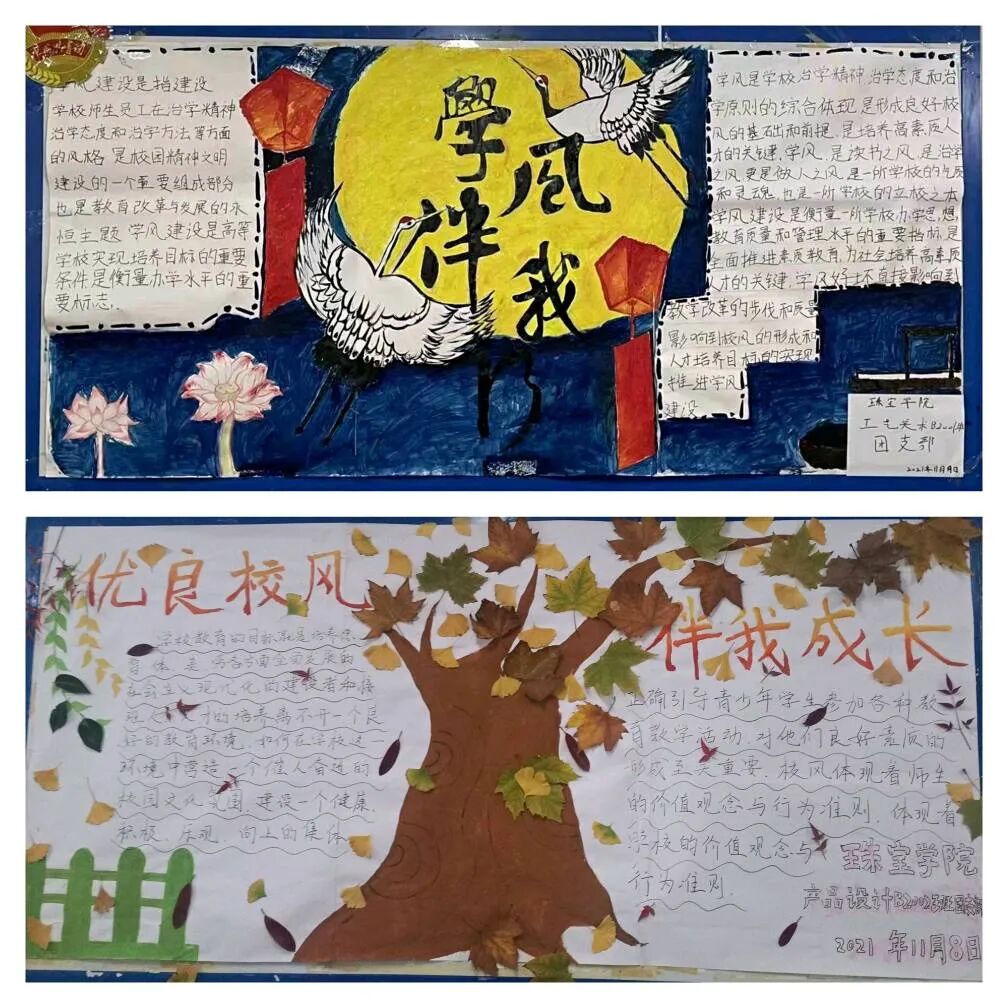 学风建设是指建设
学校师生员工在治学精神
治学态度和治学方法等方面
的风格 是校园精神文明
建设的一个重要组成部分
也是教育改革与发展的永
恒主题 学风建设是高等
学校实现培养目标的重要
条件是衡量办学水平的重
要标志.
學風
伴我
行
学风是学校治学精神治学态度和治
学原则的综合体现是形成良好校
风的基础和前提,是培养高素质人
才的关键,学风,是读书之风,是治学
之风,更是做人之风,是一所学校的气质
和灵魂,也是一所学校的立校之本
学风建设是衡量一所学校办学思想,
教育质量和管理水平的重要指标,是
全面推进素质教育,为社会培养高素质
人才的关键,学风好坏直接影响到
教学改革的步伐和质量
影响到校风的形成和
人才培养目标的实现
推进学风
建设
珠宝学院
工艺美术B2001班
团支部
2021年11月9日
优良校风
伴我成长
学校教育的目标就是培养德
智体美劳各方面全面发展的
社会主义现代化的建设者和接
班人 人才的培养离不开一个良
好的教育环境,如何在学校这一
环境中营造一个催人奋进的
校园文化氛围,建设一个健康,
积极、乐观、向上的集体
正确引导青少年学生参加各种教
育教学活动,对他们良好素质的
形成至关重要.校风体现着师生
的价值观念与行为准则.体现着
学校的价值观念与
行为准则.
珠宝学院
产品设计B2002班团支部
2021年11月8日